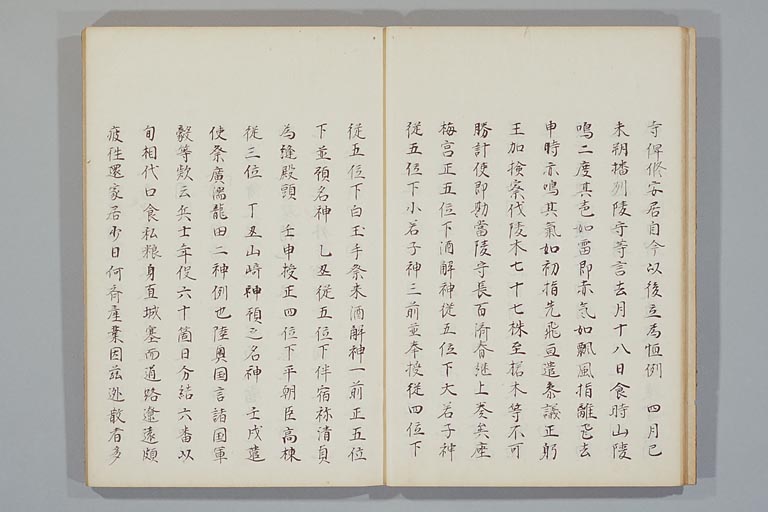 寺俾修安居自今以後立為恒例　四月己
未朔楯列陵守等言去月十八日食時山陵
鳴二度其声如雷即赤気如飄風指離飛去
申時亦鳴其氣如初指兊飛亘遣参議正躬
王加撿察伐陵木七十七株至楉木等不可
勝計使即勘當陵守長百済春継上奏矣座
梅宮正五位下酒解神従五位下大若子神
従五位下小若子神三前並奉授従四位下
従五位下白玉手祭来酒解神一前正五位
下並預名神　乙丑従五位下伴宿祢清貞
為縫殿頭　壬申授正四位下平朝臣高棟
従三位　丁丑山崎神預之名神　壬戌遣
使祭廣湍龍田二神例也陸奥国言諸国軍
毅等欵云兵士年役六十箇日分結六番以
旬相代口食私粮身直城塞而道路遼遠頗
疲往還家居少日何斉産業因茲逃散者多